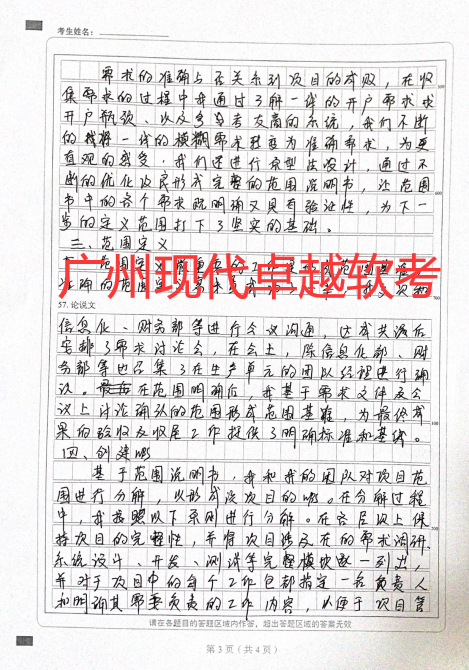 考生姓名：
需求的准确与否关系到项目的成败，在收
集需求的过程中我通过了解一线的开户需求
开户瓶颈、以及系统，我们不断
的将一线的模糊需求转变为准确需求，为更
直观的我们还进行原型法设计，通过不
断的优化形成完整的范围说明书，让范围
书中的每个需求既明确又具有验证性，为下一
步的定义范围打下了坚实的基础。
三、范围定义
广州现代卓越软考
准确的范围
57. 论说文
信息化、财务部等进行会议沟通，达成共识后
了需求讨论会，在会上，除信息化部、财
务部等也召集了在生产单元的团队经理进行确
认。在范围明确后，我基于需求文件及会
议上讨论确认的范围形成范围基准，为最终成
果的验收及收尾工作提供了明确标准和基线。
四、创建
基于范围说明书，我和我的团队对项目范
围进行分解，以形成该项目的。在分解过程
中，我按照以下原则进行分解。在层次上保
持项目的完整性，并将项目涉及在的需求调研、
系统设计、开发、测试等完整模块一列出，
并对于项目中的每个工作包都指定一名负责人
和明确其需要负责的工作内容，以便于项目管
请在各题目的答题区域内作答，超出答题区域的答案无效
第 3 页（共 4 页）
100
600
700
100